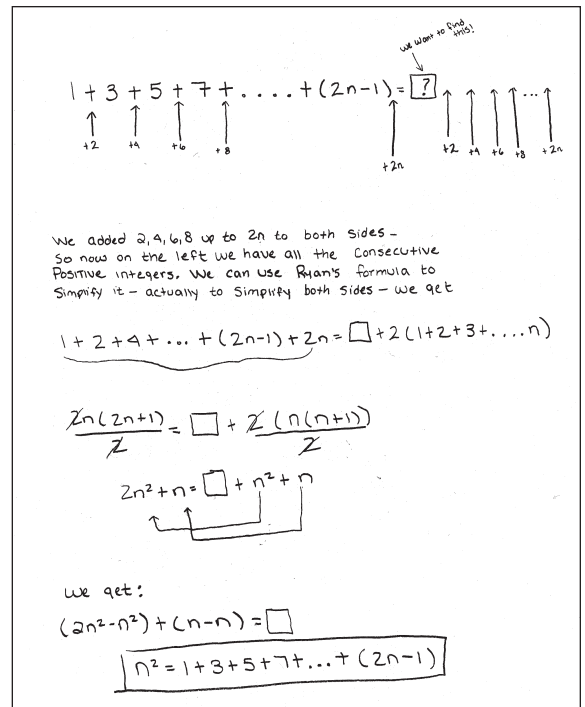 we want to find
this!
1 + 3 + 5 + 7 + . . . . + (2n-1) = ?
+2 +4 +6 +8 +2n +2 +4 +6 +8 ... +2n
We added 2,4,6,8 up to 2n to both sides -
So now on the left we have all the consecutive
Positive integers. We can use Ryan's formula to
Simplify it - actually to Simplify both sides - we get
1 + 2 + 4 + ... + (2n-1) + 2n = □ + 2 (1+2+3+....n)
2n(2n+1)/2 = □ + 2 (n(n+1))/2
2n² + n = □ + n² + n
we get:
(2n²-n²) + (n-n) = □
n² = 1+3+5+7+...+ (2n-1)